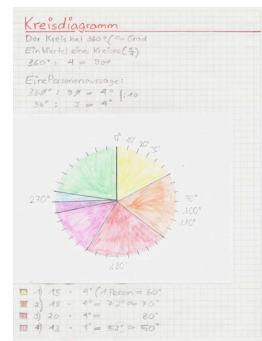 Kreisdiagramm
Der Kreis hat 360° Grad
Ein Viertel eines Kreises (¼)
360° : 4 = 90°
Eine Personenaussage:
360° : 90 = 4°
36° : 9 = 4°
:10
0° 10 20
270°
90°
100°
110°
180°
1) 15 · 4° (1 Person = 60°
2) 18 · 4° = 72° = 70°
3) 20 · 4° = 80°
4) 13 · 4° = 52° = 50°